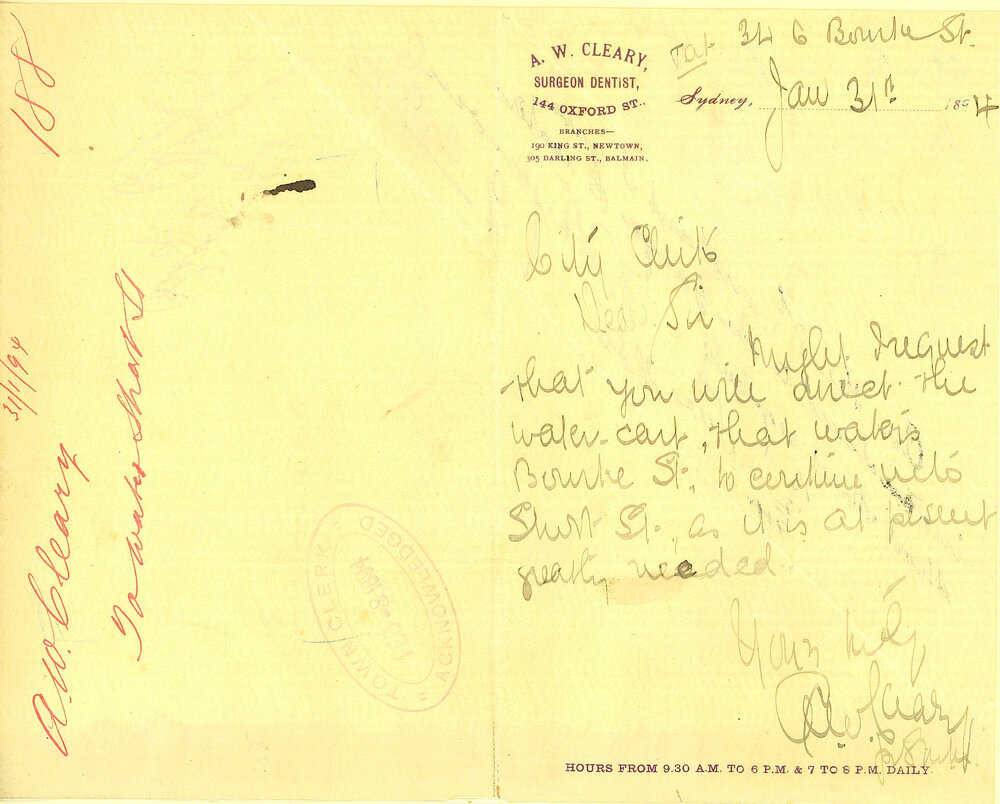 188
31/1/94
A.W. Cleary
To water Short St
TOWN CLERK
FEB-81894
"ACKNOWLEDGED"
A. W. CLEARY,
SURGEON DENTIST,
144 OXFORD ST.,
BRANCHES—
190 KING ST., NEWTOWN,
305 DARLING ST., BALMAIN.
346 Bourke St.
Sydney, Jan 31st 1894
City Clerk
Dear Sir
Might I request
that you will direct the
water-cart, that waters
Bourke St., to continue into
Short St., as it is at present
greatly needed
Yours
A W Cleary
HOURS FROM 9.30 A.M. TO 6 P.M. & 7 TO 8 P.M. DAILY.